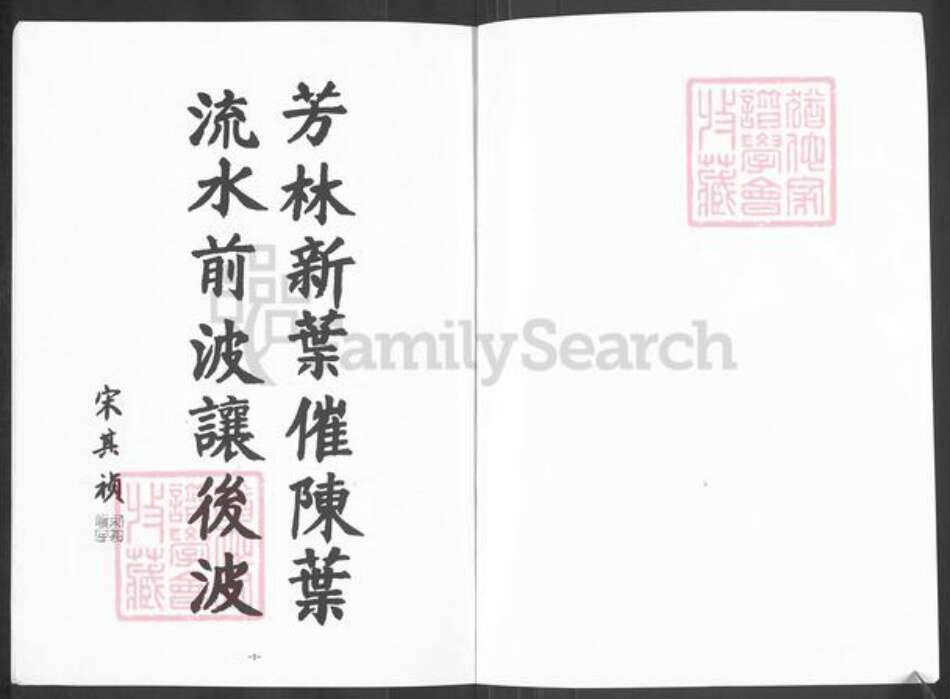 芳林新葉催陳葉
流水前波讓後波
宋其禎
-1-
FamilySearch
譜學會
收藏